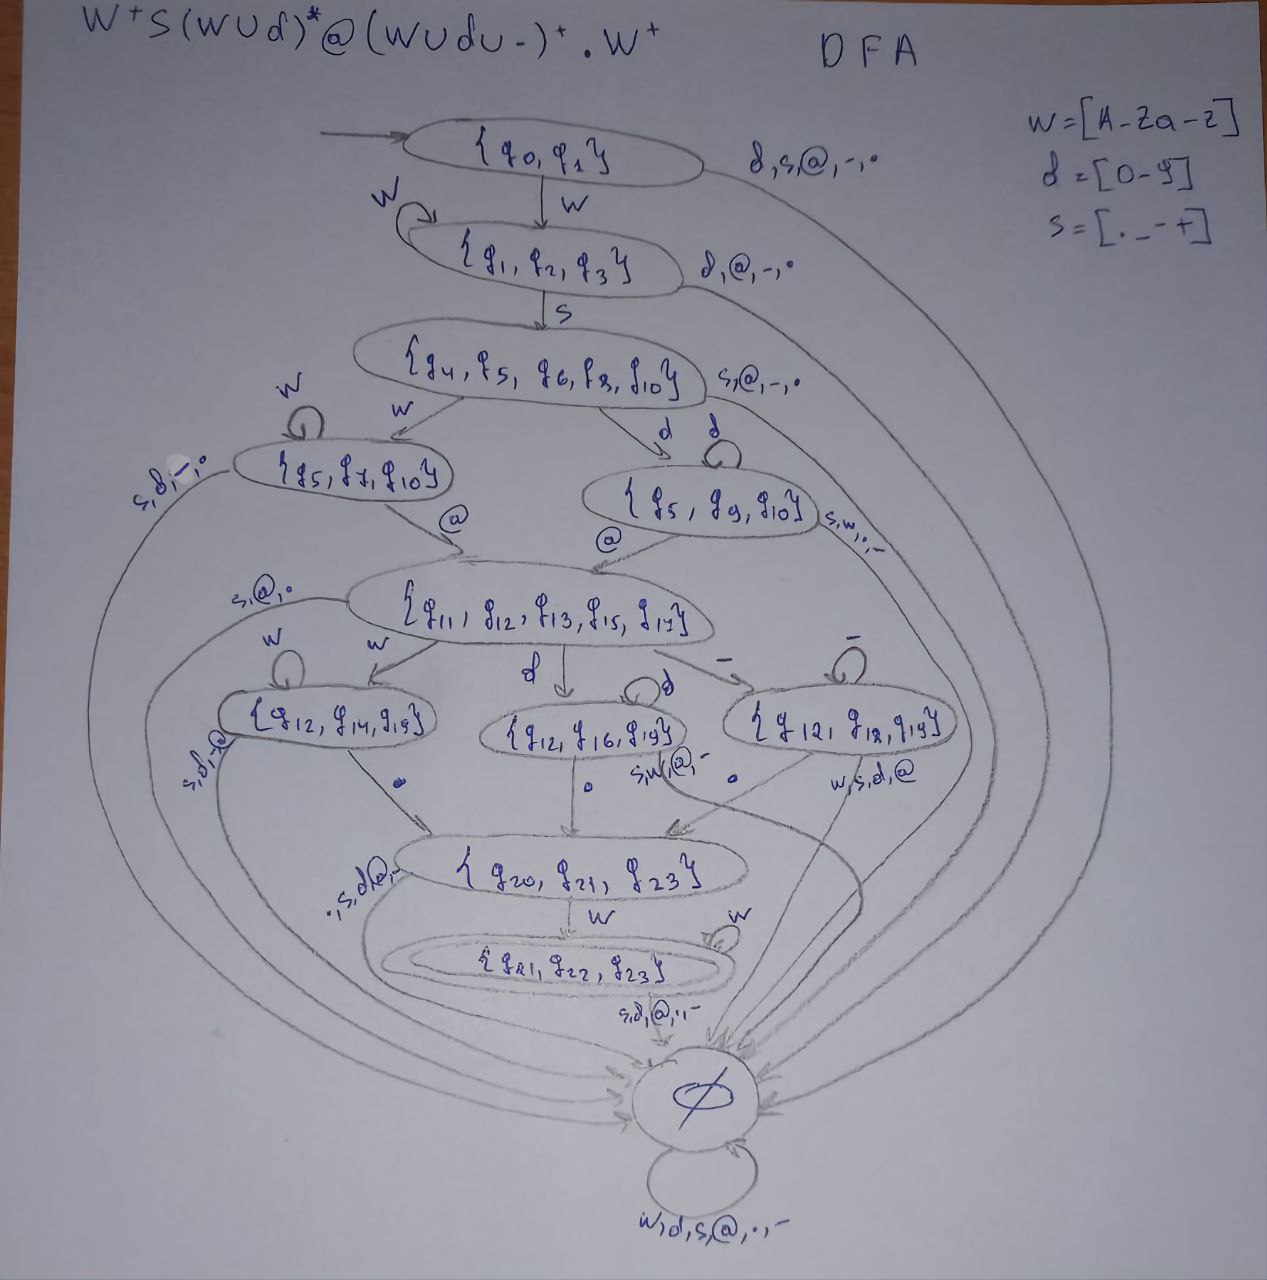 W⁺S(W∪d)*@(W∪d∪-)⁺.W⁺
DFA
w=[A-Za-z]
d=[0-9]
s=[._-+]
{q0, q1}
d,s,@,-,.
w
w
{q1, q2, q3}
d,@,-,.
s
{q4, q5, q6, q8, q10}
s,@,-,.
w
w
d
d
s,d,-,.
{q5, q7, q10}
{q5, q9, q10}
s,w,.,-
@
@
s,@,.
{q11, q12, q13, q15, q17}
w
w
d
d
-
-
{q12, q14, q19}
{q12, q16, q19}
{q12, q18, q19}
s,d,-,@
s,w,@,-
w,s,d,@
.
.
.
{q20, q21, q23}
.,s,d,@,-
w
w
{q21, q22, q23}
s,d,@,.,-
∅
w,d,s,@,.,-